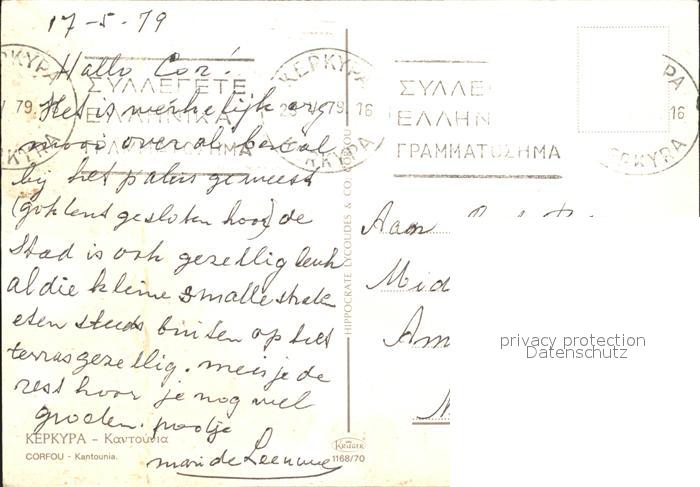 17-5-79
Hallo Cor!
Het is werkelijk erg
mooi overal
bij het paleis geweest
gesloten hoor) de
Stad is ook gezellig leuk
al die kleine smalle straten
eten steeds buiten op het
terras gezellig. meisje de
rest hoor je nog wel
groeten. pootje
ΚΕΡΚΥΡΑ – Καντούνια
CORFOU - Kantounia.
HIPPOCRATE LYCOUDES & CO. CORFOU
KRÜGER
1168/70
ΚΕΡΚΥΡΑ
79
ΣΥΛΛΕΓΕΤΕ
ΕΛΛΗΝΙΚΑ
ΓΡΑΜΜΑΤΟΣΗΜΑ
ΚΕΡΚΥΡΑ
79 16
ΚΕΡΚΥΡΑ
ΣΥΛΛΕ
ΕΛΛΗΝ
ΓΡΑΜΜΑΤΟΣΗΜΑ
ΡΑ
16
ΚΕΡΚΥΡΑ
Aan
Mid
Am
privacy protection
Datenschutz